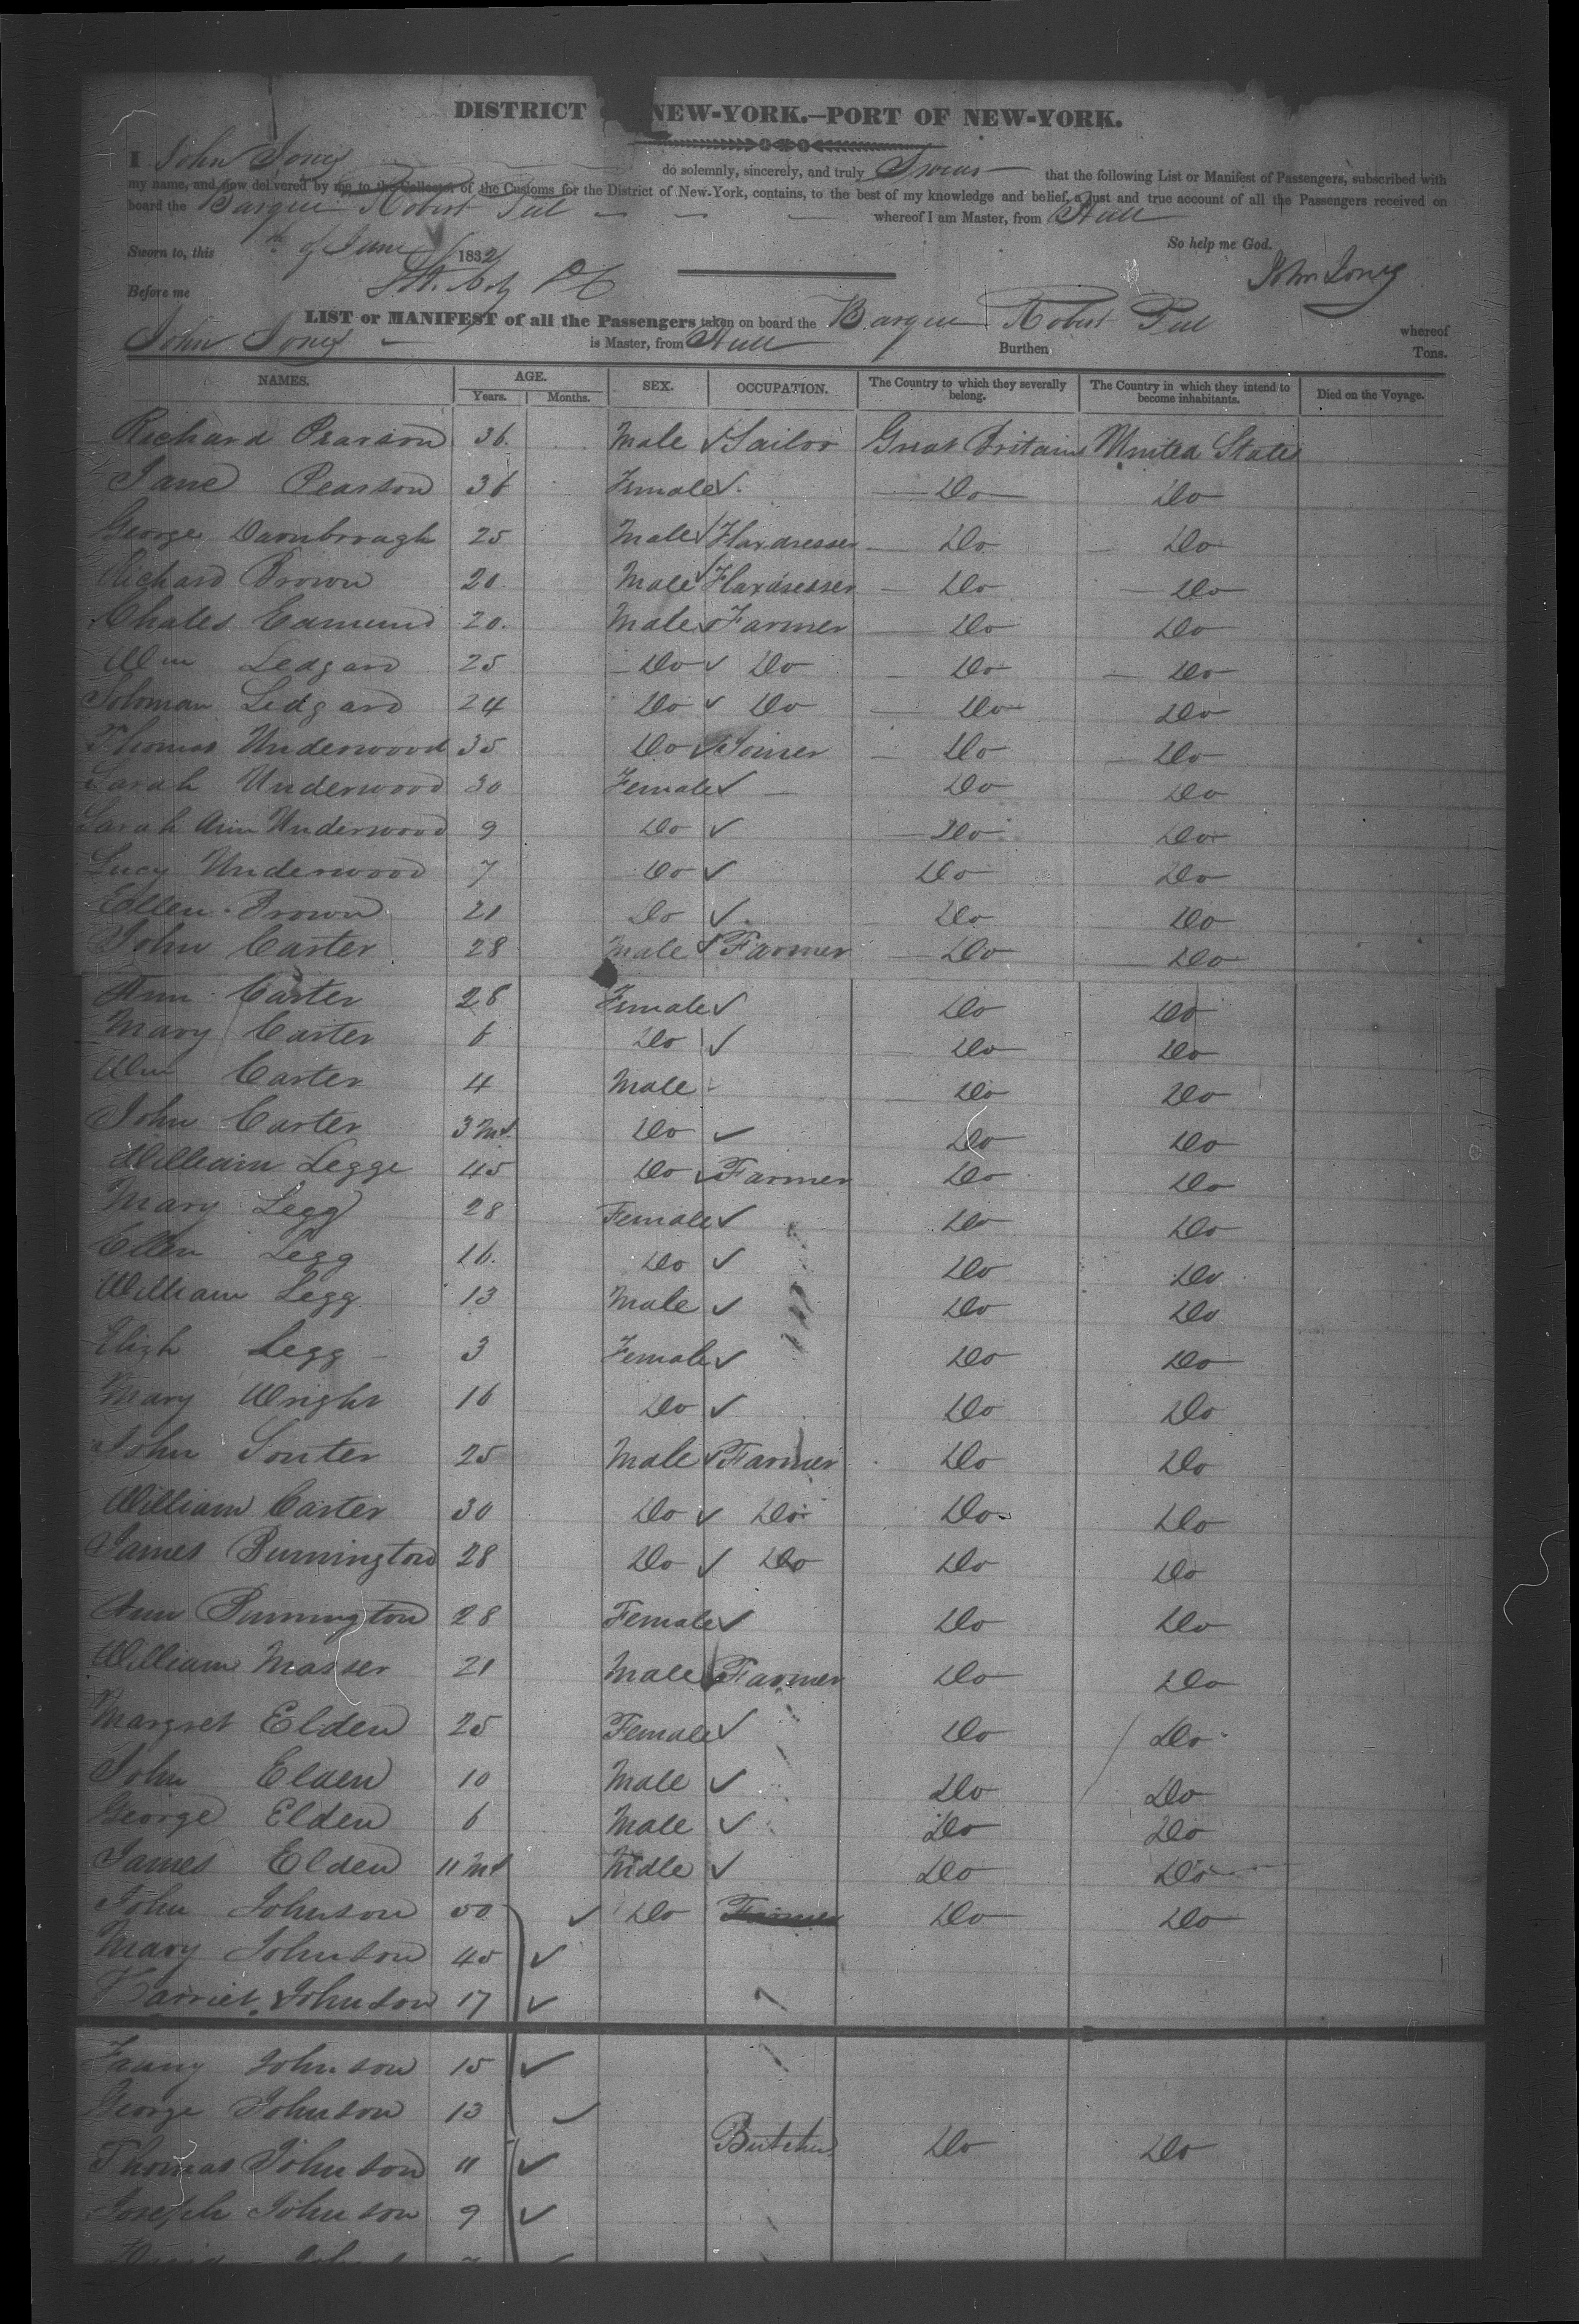 DISTRICT NEW-YORK.—PORT OF NEW-YORK.
I John Jones do solemnly, sincerely, and truly Swear that the following List or Manifest of Passengers, subscribed with
my name, and now delivered by me to the Collector of the Customs for the District of New-York, contains, to the best of my knowledge and belief, a just and true account of all the Passengers received on
board the Barque Robert Peel whereof I am Master, from Hull
So help me God.
Sworn to, this th of June 1832
John Jones
Before me
LIST or MANIFEST of all the Passengers taken on board the Barque Robert Peel whereof
John Jones is Master, from Hull Burthen Tons.
NAMES. AGE. SEX. OCCUPATION. The Country to which they severally belong. The Country in which they intend to become inhabitants. Died on the Voyage.
Years. Months.
Richard Pearson 36. Male Sailor Great Britain United States
Jane Pearson 36 Female Do Do
George Darnbrough 25 Male Flaxdresser Do Do
Richard Brown 20 Male Flaxdresser Do Do
Chales Edmund 20. Male Farmer Do Do
Wm Ledgard 25 Do Do Do Do
Soloman Ledgard 24 Do Do Do Do
Thomas Underwood 35 Do Joiner Do Do
Sarah Underwood 30 Female Do Do
Sarah Ann Underwood 9 Do Do Do
Lucy Underwood 7 Do Do Do
Ellen Brown 21 Do Do Do
John Carter 28 Male Farmer Do Do
Ann Carter 28 Female Do Do
Mary Carter 6 Do Do Do
Wm Carter 4 Male Do Do
John Carter 3 Mt. Do Do Do
William Legge 45 Do Farmer Do Do
Mary Legg 28 Female Do Do
Ellen Legg 16. Do Do Do
William Legg 13 Male Do Do
Elizh Legg 3 Female Do Do
Mary Wright 16 Do Do Do
John Souter 25 Male Farmer Do Do
William Carter 30 Do Do Do Do
James Bunnington 28 Do Do Do Do
Ann Bunnington 28 Female Do Do
William Masser 21 Male Farmer Do Do
Margret Elden 25 Female Do Do
John Elden 10 Male Do Do
George Elden 6 Male Do Do
James Elden 11 Mt Male Do Do
John Johnson 50 Do Farmer Do Do
Mary Johnson 45
Harriet Johnson 17
Fanny Johnson 15
George Johnson 13
Thomas Johnson 11 Butcher Do Do
Joseph Johnson 9